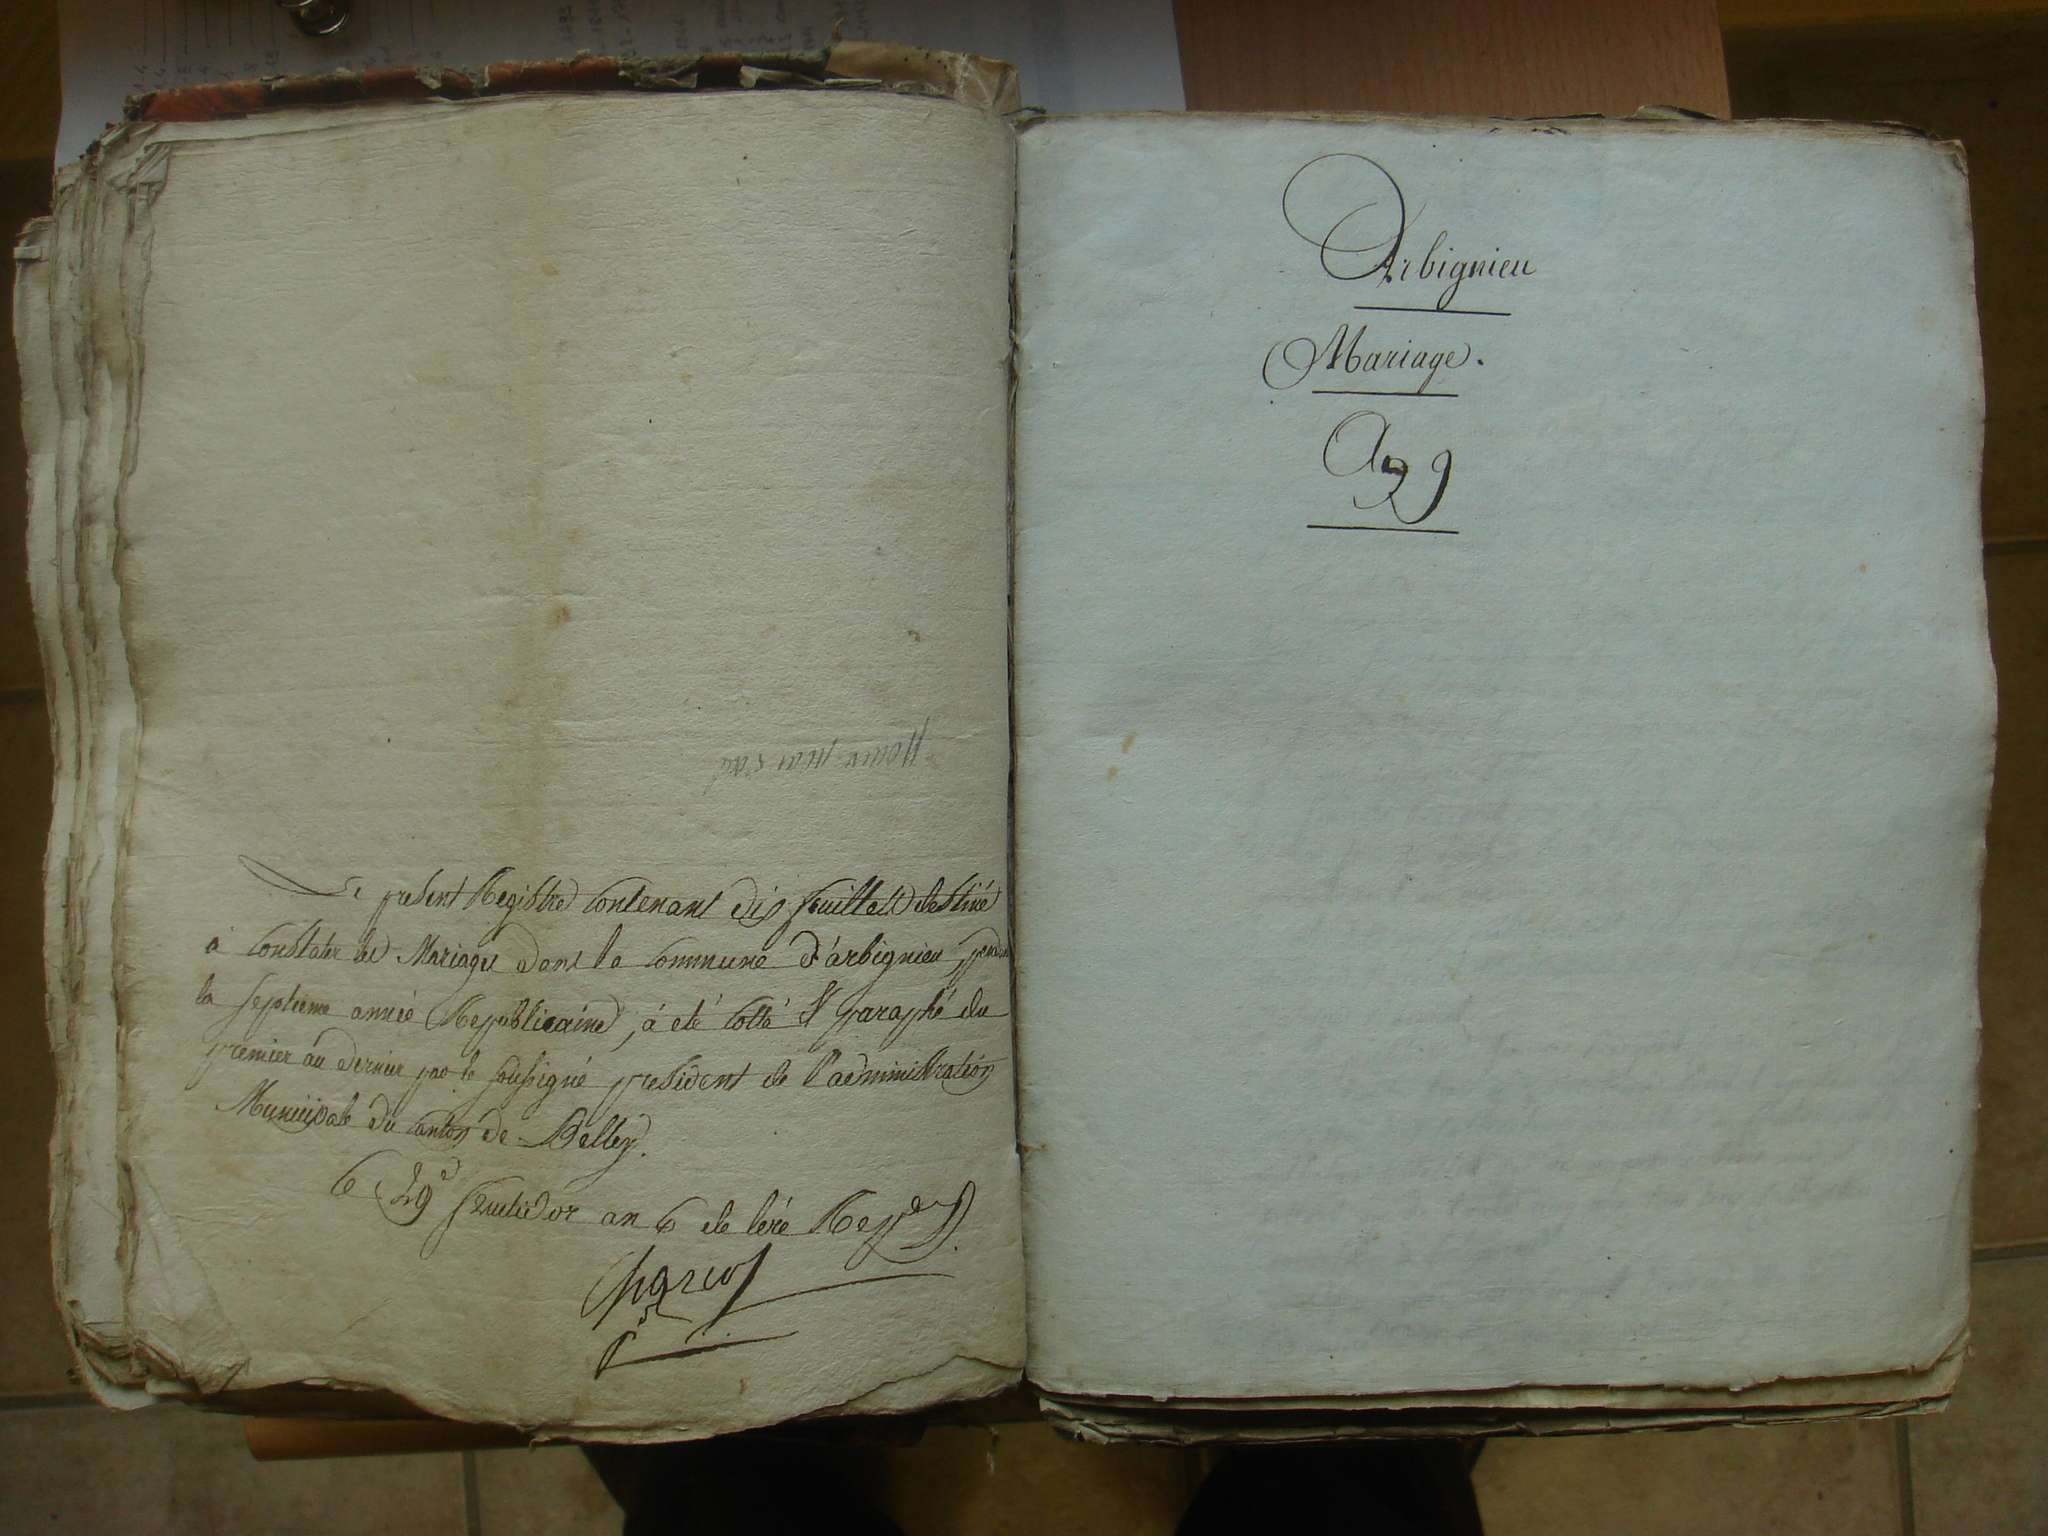 Le present Registre contenant dix feuillets destiné
à constater les Mariages dans la commune d'arbignieu pendant
la septieme année Republicaine, à été cotté et paraphé du
premier au dernier par le soussigné president de l'administration
Municipale du canton de Belley.
le 29e fructidor an 6 de l'ere Rep
Arbignieu
Mariage.
An 9